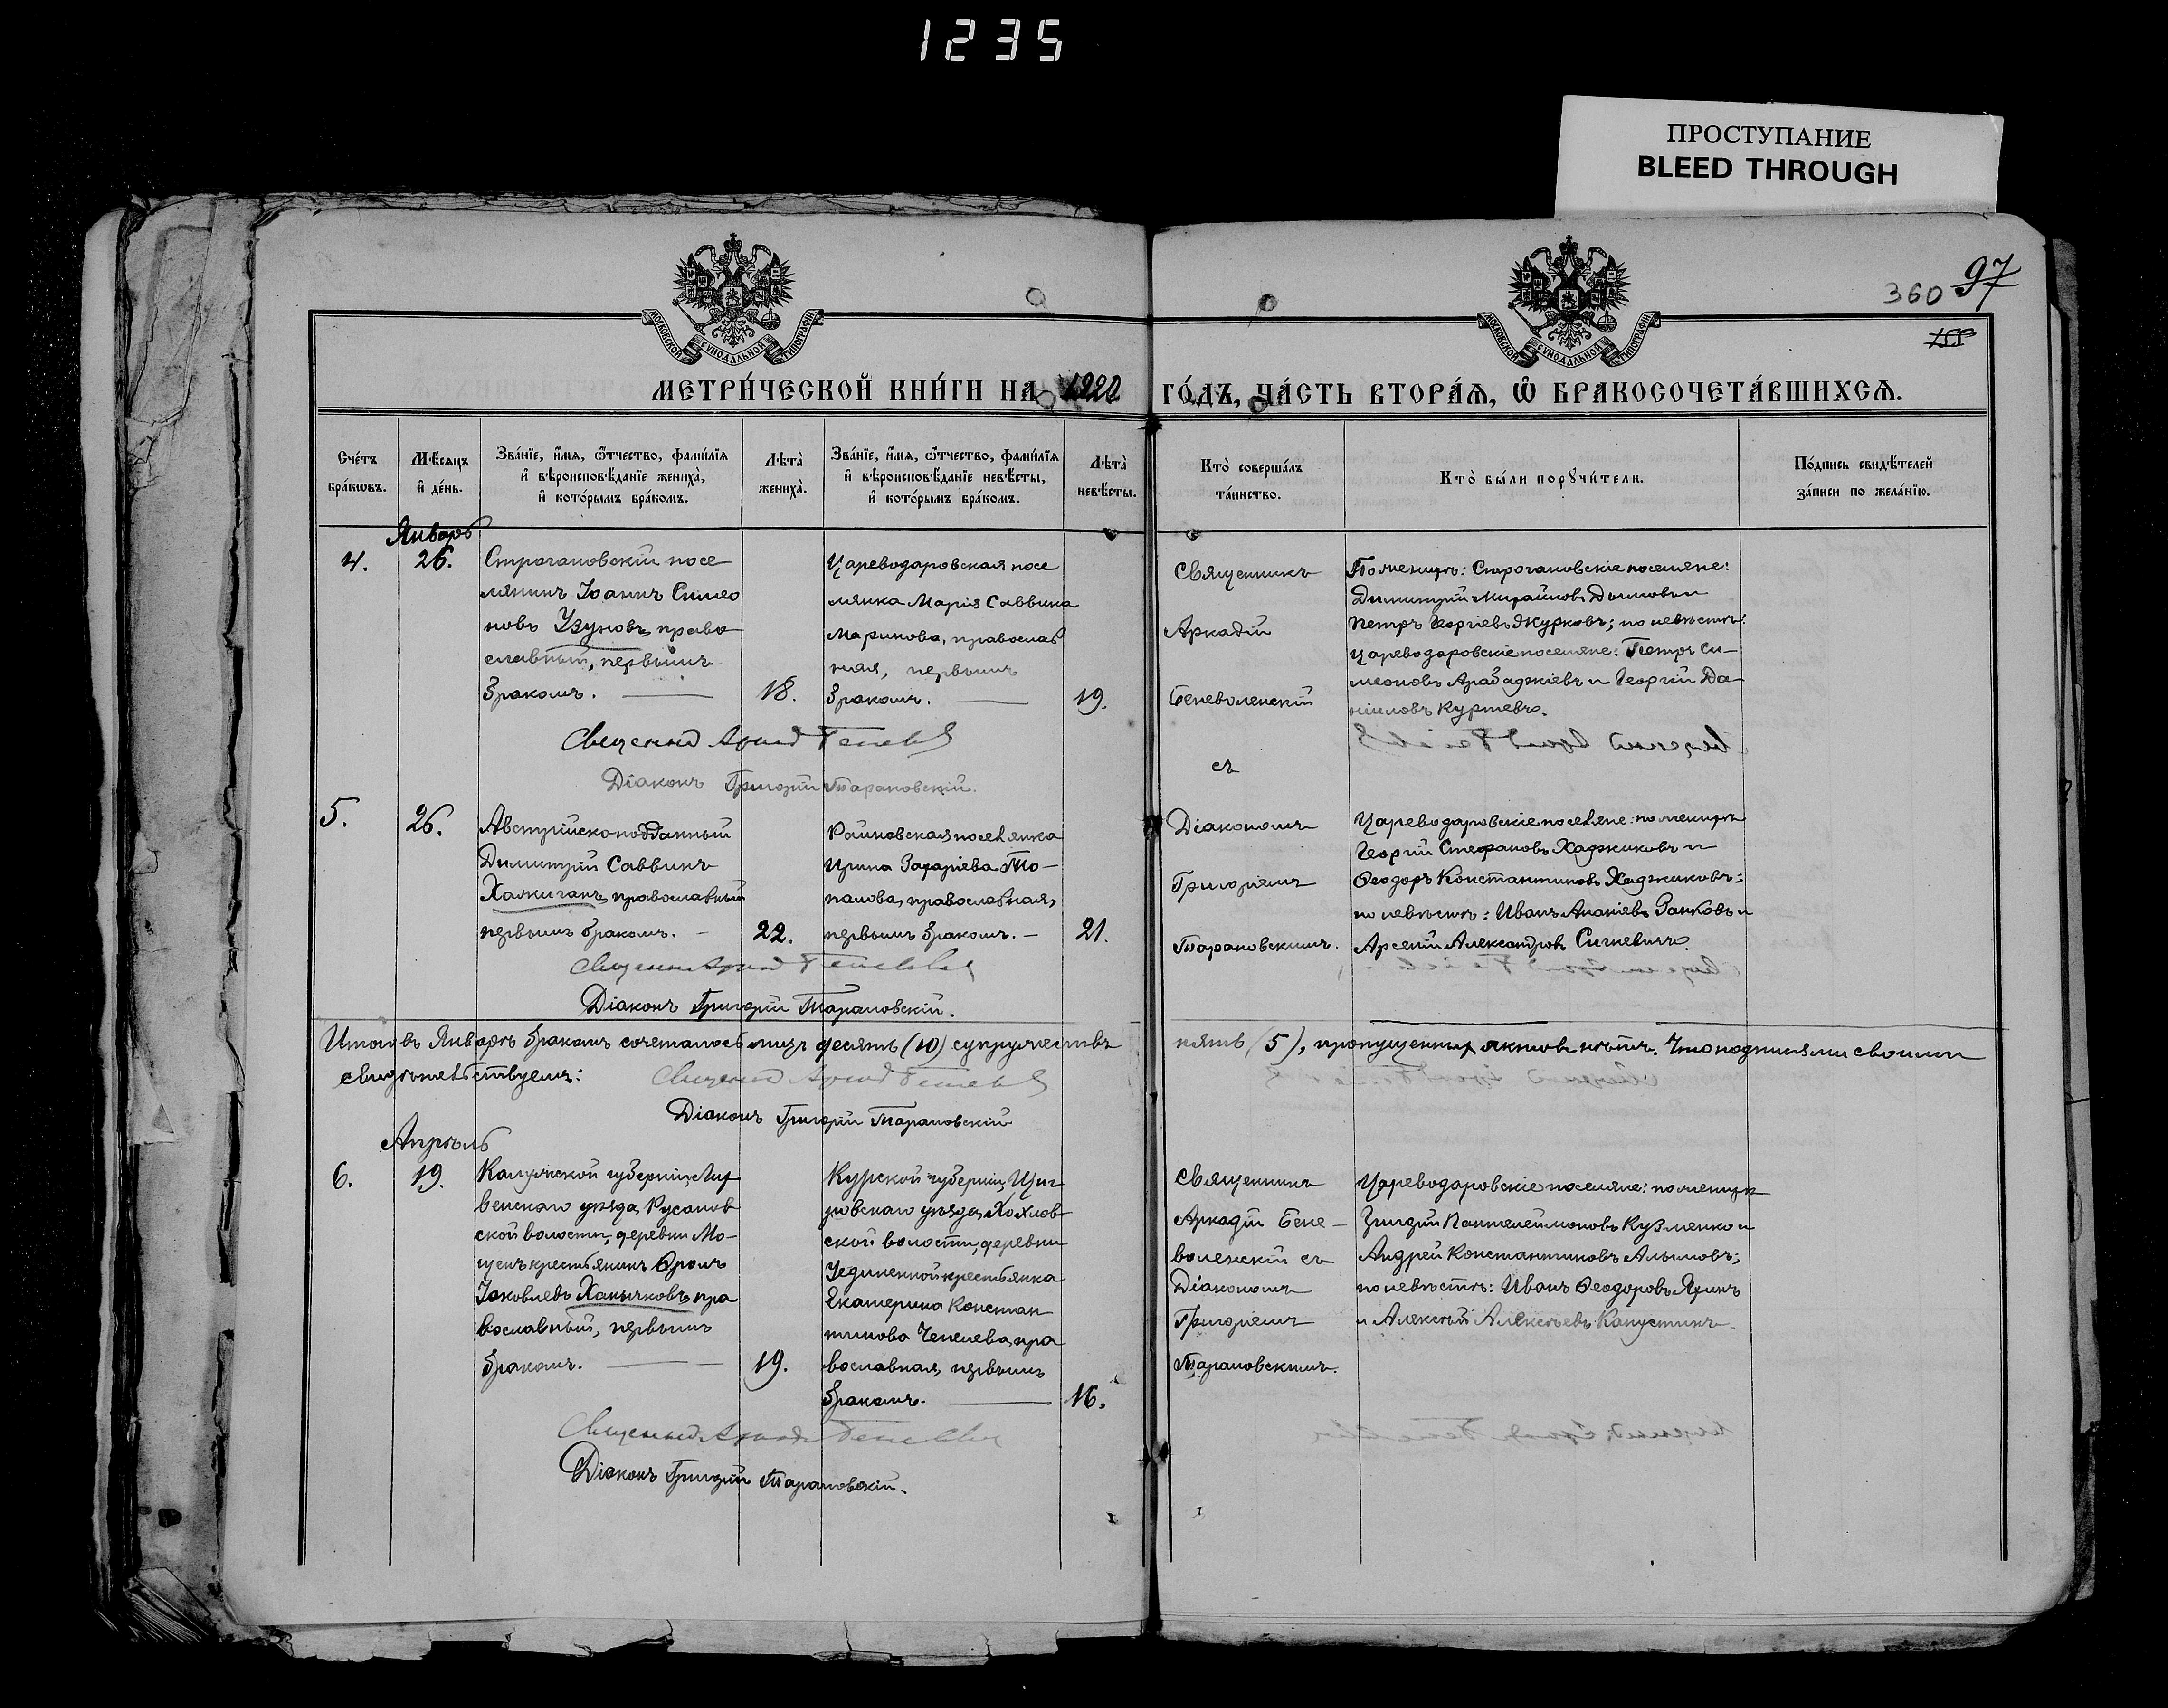 1235
ПРОСТУПАНИЕ
BLEED THROUGH
360 97
155
МОСКОВСКОЙ СѴНОДАЛЬНОЙ ТИПОГРАФІИ
МОСКОВСКОЙ СѴНОДАЛЬНОЙ ТИПОГРАФІИ
МЕТРИ́ЧЕСКОЙ КНИ́ГИ НА 1920 ГО́ДЪ, ЧА́СТЬ ВТОРА́Ѧ, Ѽ БРАКОСОЧЕТА́ВШИХСѦ.
Сче́тъ бра́кѡвъ.
Мѣ́сяцъ и҆ де́нь.
Зва́нїе, и҆́мя, ѻ҆́тчество, фами́лїя и҆ вѣроисповѣ́данїе жениха̀, и҆ кото́рымъ бра́комъ.
Лѣта̀ жениха̀.
Зва́нїе, и҆́мя, ѻ҆́тчество, фами́лїя и҆ вѣроисповѣ́данїе невѣ́сты, и҆ кото́рымъ бра́комъ.
Лѣта̀ невѣ́сты.
Кто̀ соверша́лъ та́инство.
Кто̀ бы́ли порꙋчи́тели.
По́дпись свидѣ́телей за́писи по жела́нїю.
Январь
4.
26.
Строгановскій посе
лянинъ Іоаннъ Симео
новъ Узуновъ, право
славный, первымъ
бракомъ.
18.
Цареводаровская посе
лянка Марія Саввина
Маринова, православ
ная, первымъ
бракомъ.
19.
Священникъ
Аркадій
Беневоленскій
съ
По женихѣ: Строгановскіе поселяне:
Димитрій
Петръ Георгіевъ Журковъ; по невѣстѣ:
Цареводаровскіе поселяне: Петръ Си-
меоновъ Арабаджіевъ и Георгій Да-
ніиловъ Куртевъ.
Діаконъ Григорій Тарановскій.
5.
26.
Австрійскоподданный
Димитрій Саввинъ
православный
первымъ бракомъ.
22.
Райновская поселянка
Ирина Захаріева То-
палова, православная,
первымъ бракомъ.
21.
Діакономъ
Григоріемъ
Тарановскимъ.
Цареводаровскіе поселяне: по женихѣ
Георгій Стефановъ Хаджиковъ и
Ѳеодоръ Константиновъ Хаджиковъ;
по невѣстѣ: Иванъ Ананіевъ Занковъ и
Арсеній Александровъ Сичкевичъ.
Діаконъ Григорій Тарановскій.
Итого въ Январѣ бракомъ сочеталось лицъ десять (10) супружествъ пять (5), пропущенныхъ актовъ нѣтъ. Что подписями своими
свидѣтельствуемъ:
Діаконъ Григорій Тарановскій
Апрѣль
6.
19.
Калужской губерніи, Лих
венскаго уѣзда, Русанов
ской волости, деревни Мо-
крестьянинъ Ѳролъ
Іаковлевъ Ханычковъ, пра
вославный, первымъ
бракомъ.
19.
Курской губерніи, Щиг
ровскаго уѣзда, Хохлов
ской волости, деревни
Уединенной крестьянка
Екатерина Констан
тинова Чепелева, пра
вославная, первымъ
бракомъ.
16.
Священникъ
Аркадій Бене-
воленскій съ
Діакономъ
Григоріемъ
Тарановскимъ.
Цареводаровскіе поселяне: по женихѣ
Григорій Пантелеймоновъ Кузменко и
Андрей Константиновъ Алымовъ;
по невѣстѣ: Иванъ Ѳеодоровъ
и Алексѣй Алексѣевъ Капустинъ.
Діаконъ Григорій Тарановскій.